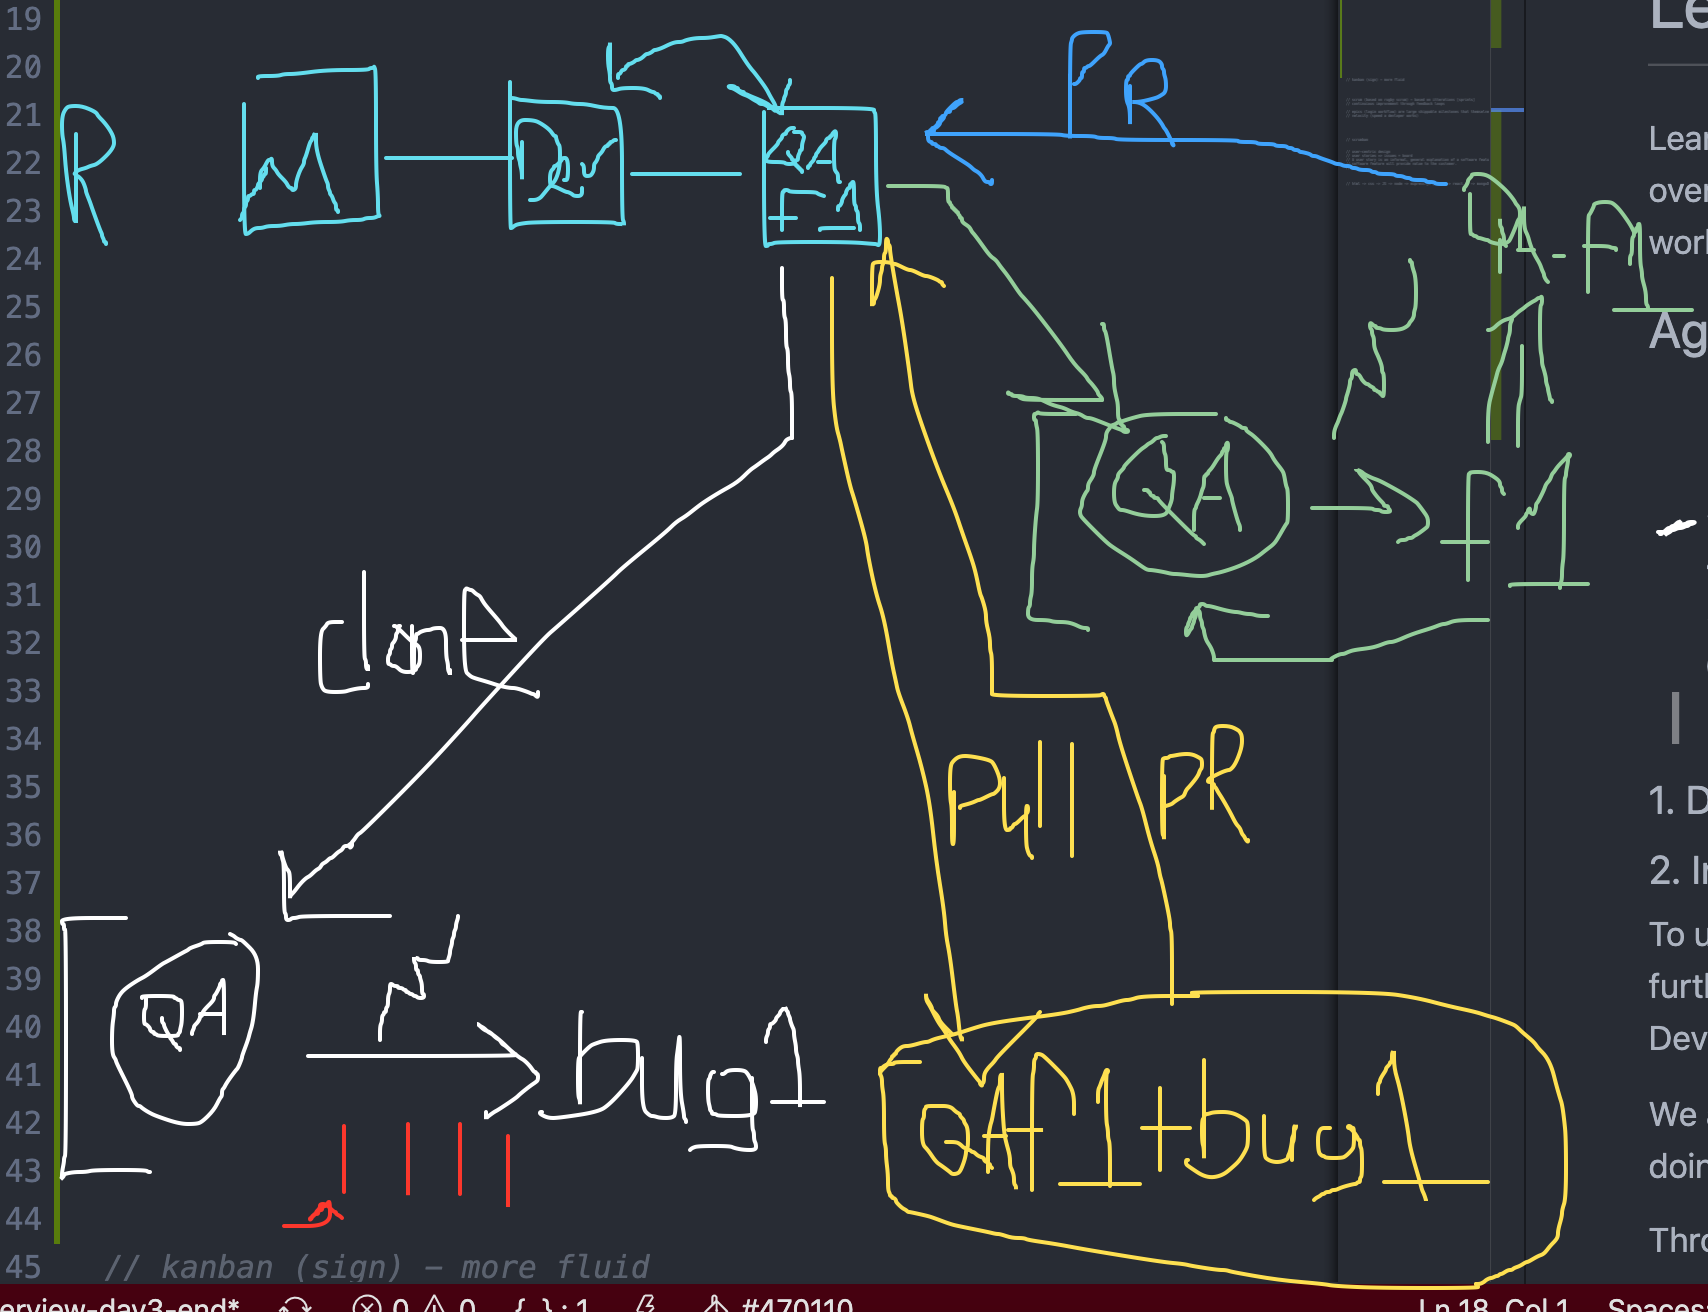 19
20
21
22
23
24
25
26
27
28
29
30
31
32
33
34
35
36
37
38
39
40
41
42
43
44
45
R
M
Dev
QA
f1
PR
QA-f1
QA
f1
clone
Pull
PR
QA
bug1
QAf1+bug1
// kanban (sign) – more fluid
Le
Lear
over
worl
Ag
1. D
2. Ir
To u
furtl
Dev
We
doin
Thro
erview-day3-end*
0
0
{ }: 1
#470110
Ln 18, Col 1
Spaces